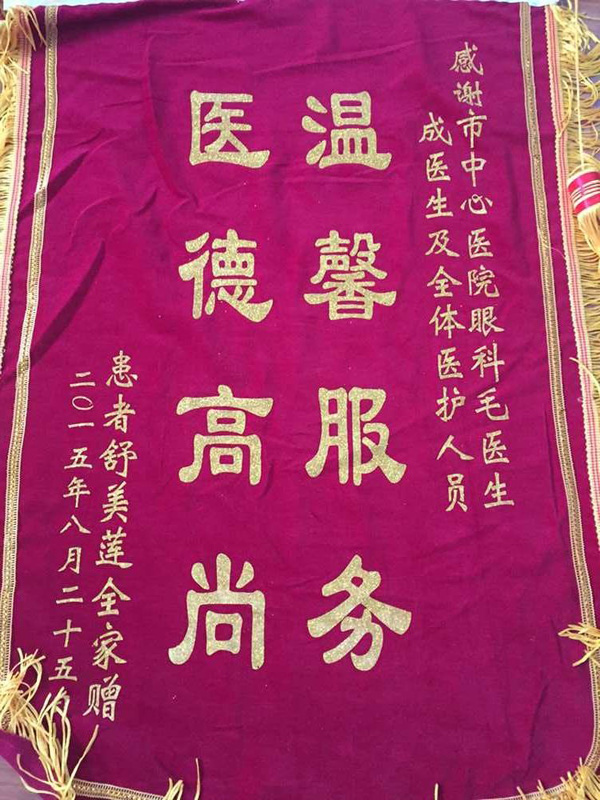 感谢市中心医院眼科毛医生
成医生及全体医护人员
温馨服务
医德高尚
患者舒美莲全家赠
二〇一五年八月二十五